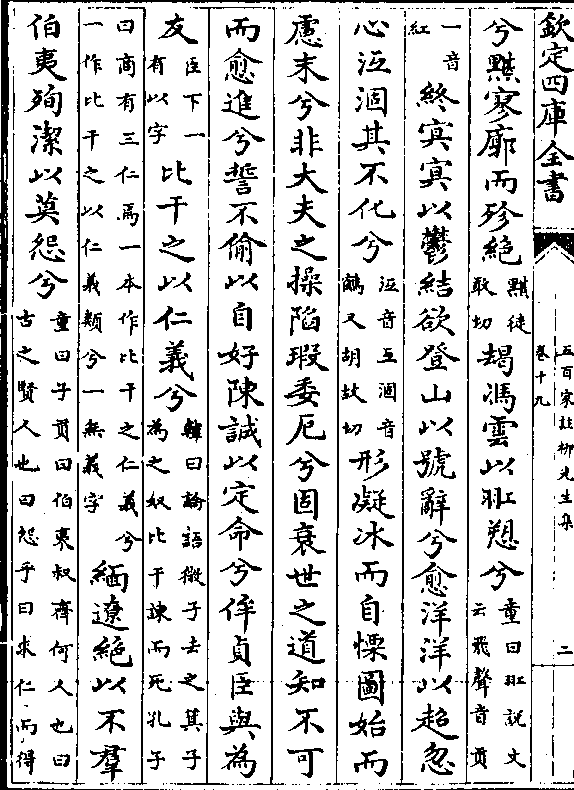 欽定四庫全書
五百家註柳先生集
卷十九
二
兮黕寥廓而殄絶黕徒敢切朅馮雲以羾愬兮童曰羾說文云飛聲音貢
一音紅終冥冥以鬱結欲登山以號辭兮愈洋洋以超忽
心沍涸其不化兮沍音互涸音鶴又胡故切形凝冰而自慄圖始而
慮末兮非大夫之操陷瑕委厄兮固衰世之道知不可
而愈進兮誓不偷以自好陳誠以定命兮侔貞臣與為
友臣下一有以字比干之以仁義兮韓曰論語微子去之其子為之奴比干諫而死孔子
曰商有三仁焉一本作比干之仁義兮一作比干之以仁義類兮一無義字緬遼絶以不羣
伯夷殉潔以莫怨兮童曰子貢曰伯夷叔齊何人也曰古之賢人也曰怨乎曰求仁而得